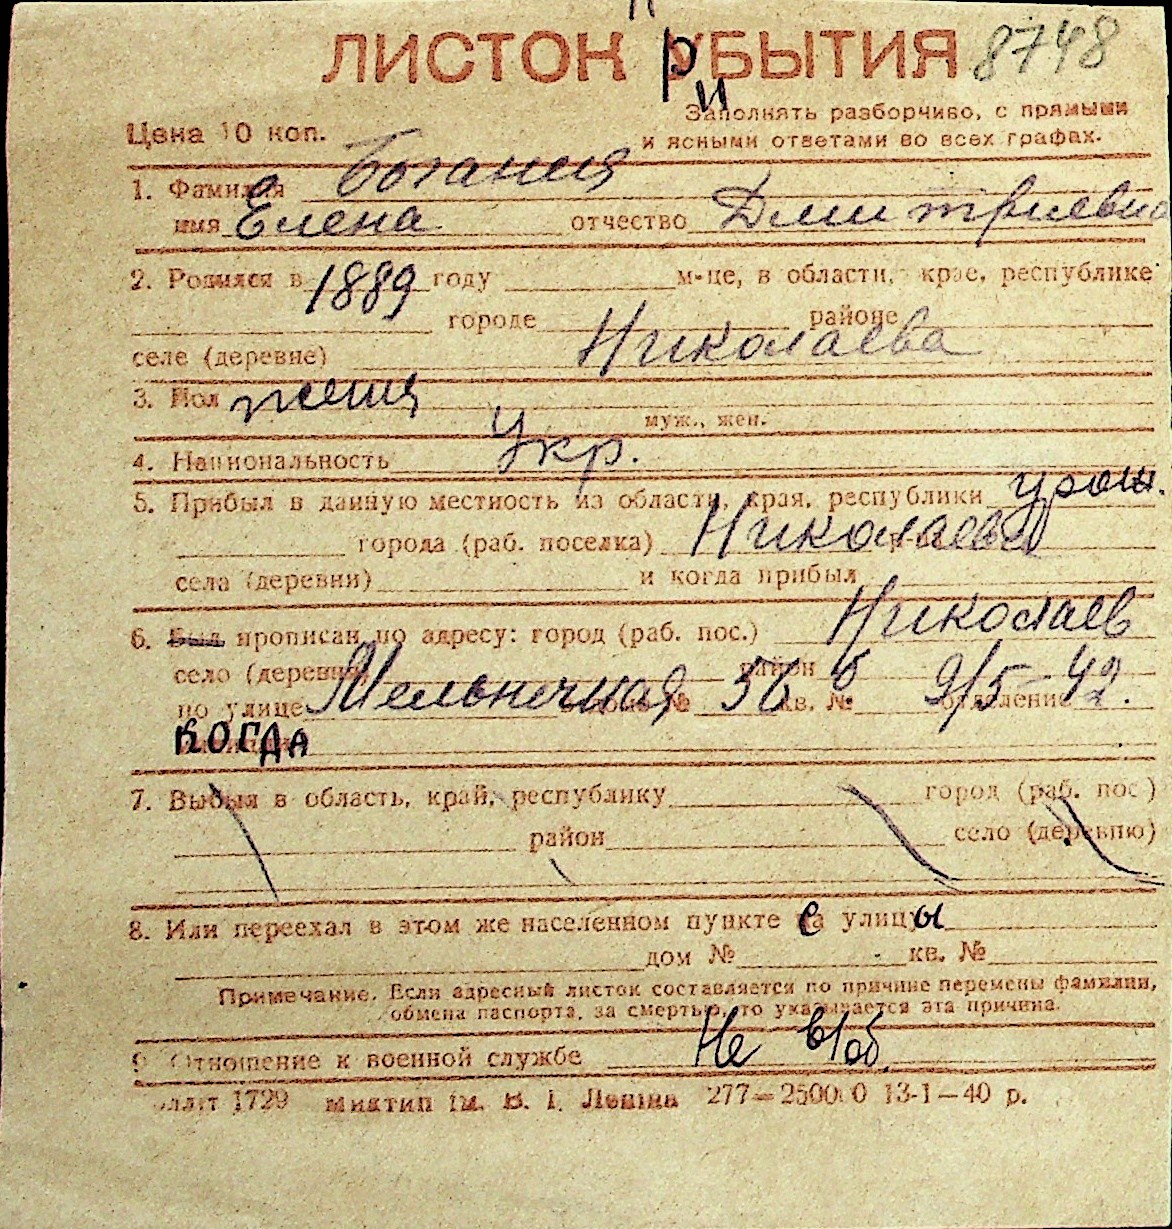 ЛИСТОК ПРИБЫТИЯ 8748
Цена 10 коп.
Заполнять разборчиво, с прямыми
и ясными ответами во всех графах.
1. Фамилия
имя Елена отчество Дмитриевна
2. Родился в 1889 году м-це, в области, крае, республике
городе районе
селе (деревне) Николаева
3. Пол женщ
муж., жен.
4. Национальность Укр.
5. Прибыл в данную местность из области, края, республики урож.
города (раб. поселка) Николаева
села (деревни) и когда прибыл
6. Был прописан по адресу: город (раб. пос.) Николаев
село (деревня) район
по улице Мельничная 36 б кв. № 9/5-42. отделение
КОГДА
7. Выбыл в область, край, республику город (раб. пос.)
район село (деревню)
8. Или переехал в этом же населенном пункте с улицы
дом № кв. №
Примечание. Если адресный листок составляется по причине перемены фамилии,
обмена паспорта, за смертью, то указывается эта причина.
9. Отношение к военной службе Не в/об.
1729 Миктип ім. В. І. Леніна 277—250000 13-1—40 р.